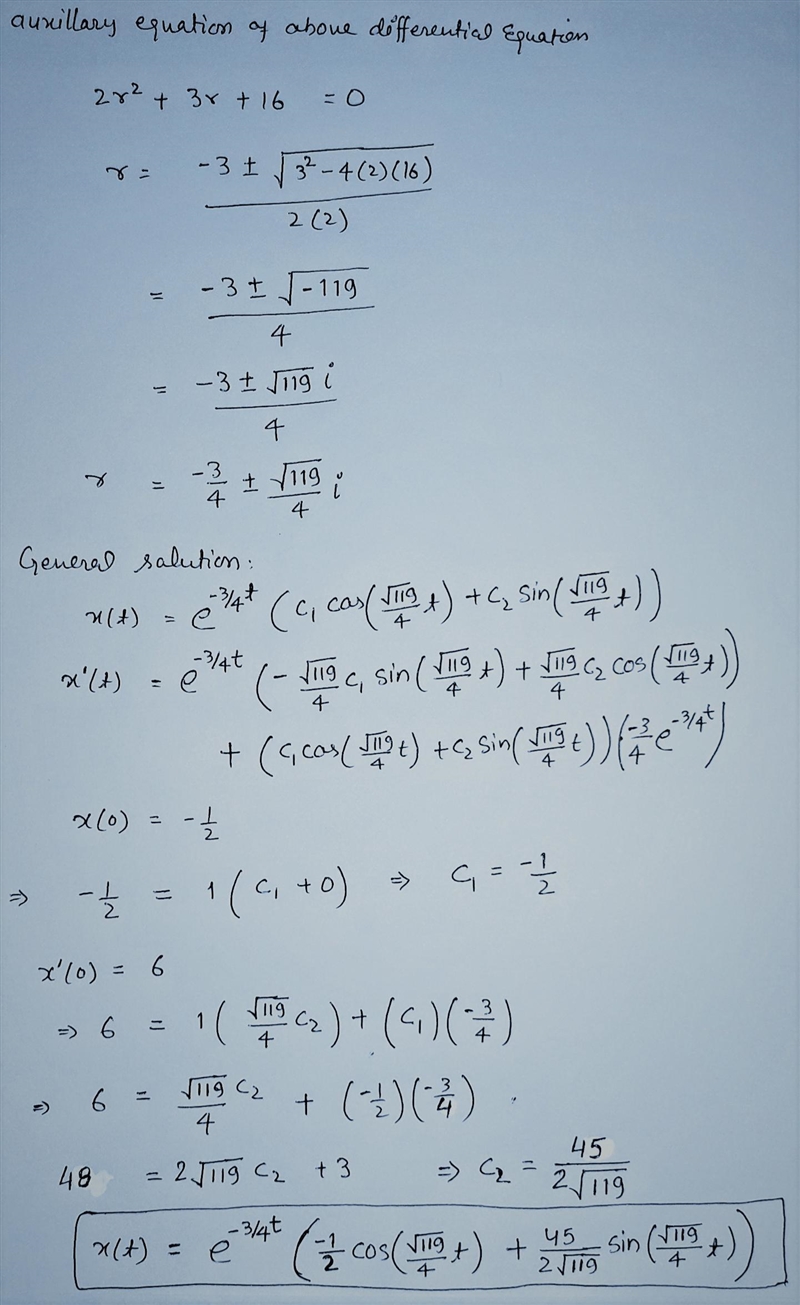 auxillary equation of above differential Equation
2r² + 3r + 16 = 0
r = (-3 ± √(3² - 4(2)(16))) / 2(2)
= (-3 ± √-119) / 4
= (-3 ± √119 i) / 4
r = -3/4 ± √119/4 i
General salution:
x(t) = e^(-3/4 t) (c₁ cos(√119/4 t) + c₂ sin(√119/4 t))
x'(t) = e^(-3/4 t) (-√119/4 c₁ sin(√119/4 t) + √119/4 c₂ cos(√119/4 t))
+ (c₁ cos(√119/4 t) + c₂ sin(√119/4 t)) (-3/4 e^(-3/4 t))
x(0) = -1/2
⇒ -1/2 = 1(c₁ + 0) ⇒ c₁ = -1/2
x'(0) = 6
⇒ 6 = 1(√119/4 c₂) + (c₁)(-3/4)
⇒ 6 = √119 c₂/4 + (-1/2)(-3/4)
48 = 2√119 c₂ + 3 ⇒ c₂ = 45/2√119
x(t) = e^(-3/4 t) (-1/2 cos(√119/4 t) + 45/2√119 sin(√119/4 t))